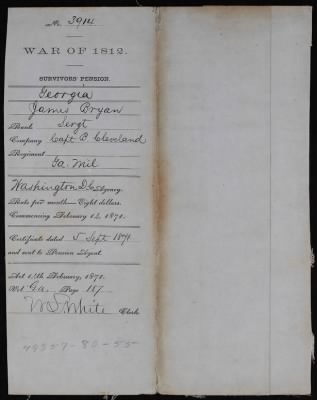 No. 3914
WAR OF 1812.
SURVIVORS' PENSION.
Georgia
James Bryan
Rank Sergt
Company Capt B. Cleveland
Regiment
Ga. Mil
Washington D.C. Agency.
Rate per month—Eight dollars.
Commencing February 14, 1871.
Certificate dated 5 Sept 1871
and sent to Pension Agent
Act 14th February, 1871.
Vol Ga. Page 187
Clerk